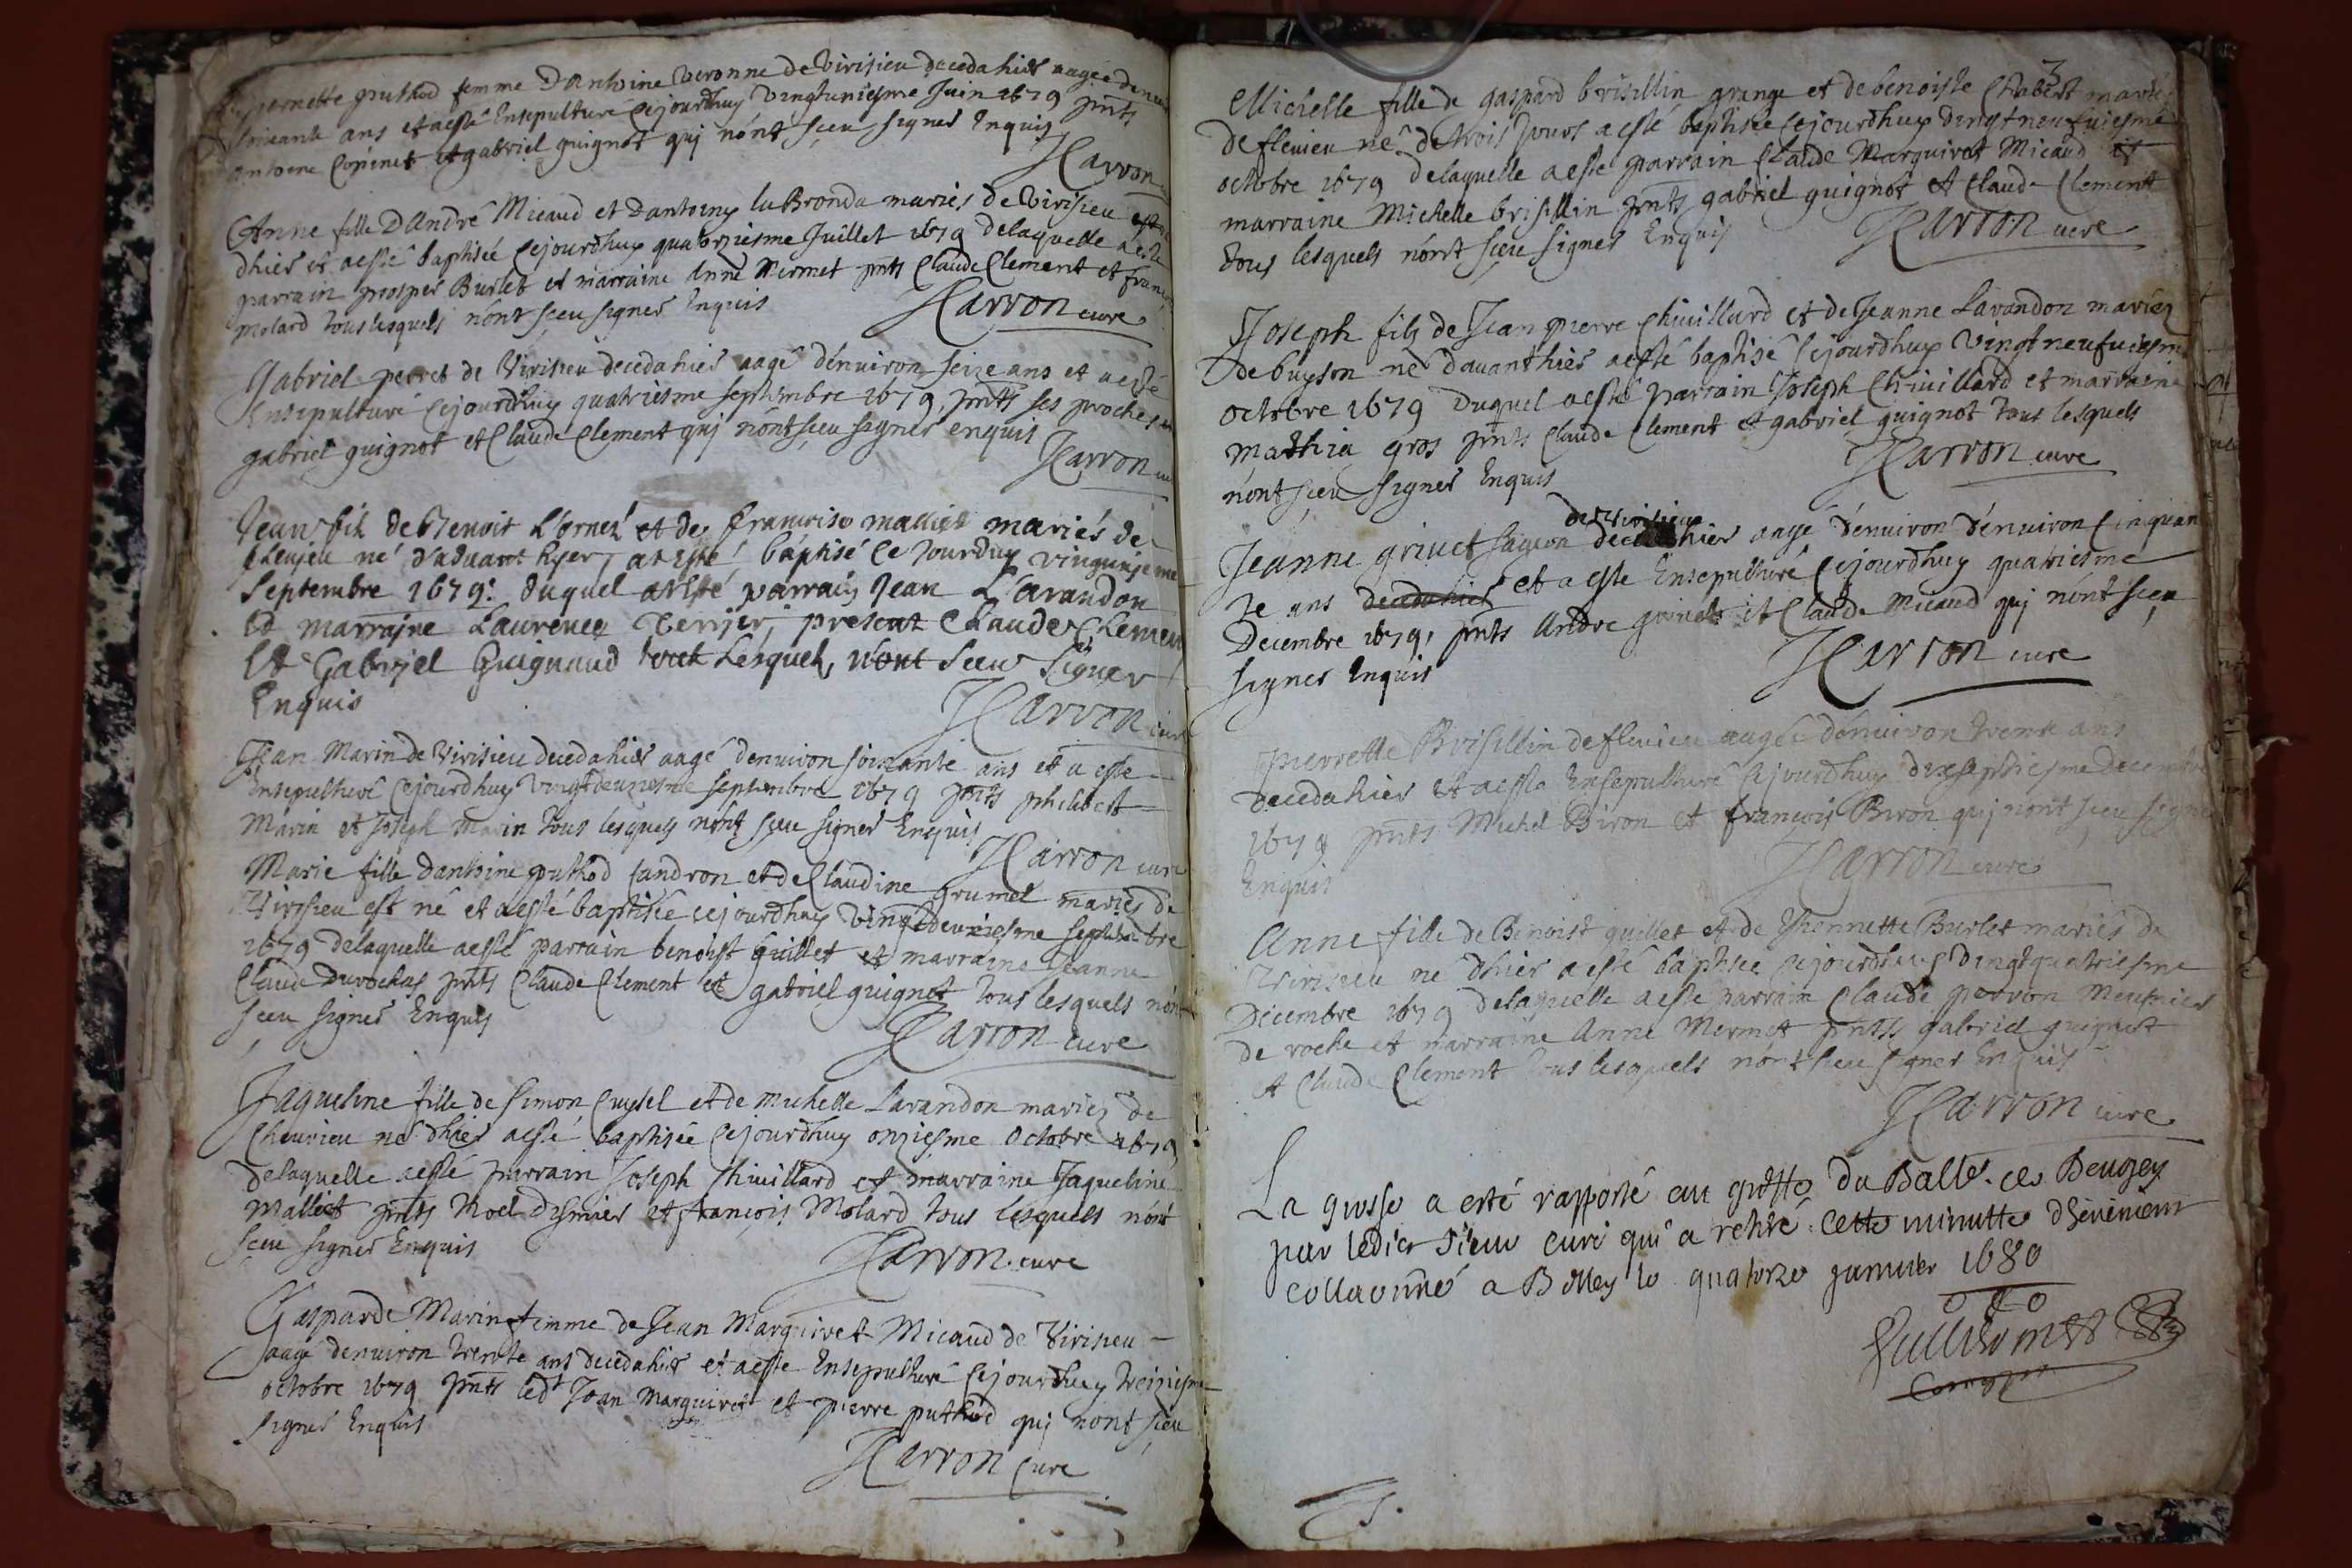 pernette puthod femme D'Antoine veronne de Virisieu decedahier aagée denui
soixante ans et aesté Ensepulturé Cejourdhuy Vingtuniesme Juin 1679 pnts
antoene Copenet et gabriel guignot qui nónt sceu signer Enquis
Harron
Anne fille D'André Micaud et dantoiny la Bronda mariés de Virisieu
dhier et aesté baptisée Cejourdhuy quatorziesme Juillet 1679 delaquelle aesté
parrain prosper Burlet et marraine Anne Mermet pnts Claude Clement et fran
molard tous lesquels nónt sceu signer Enquis
Harron cure
Gabriel perret de Virisieu decedahier aagé dénuiron seize ans et aesté
Ensepulturé Cejourdhuy quatriesme septembre 1679, pnts ses proches
gabriel guignot et Claude Clement quj nónt sceu signer enquis
Harron cu
Jean fils de Benoit Lornet et de francoise malliet mariés de
Cheujeu né dauant hyer, at esté baptisé Ce Jourduy vingunjeme
Septembre 1679: duquel at esté parrain Jean Larandon
Et marrajne Laurence Terrjer, present Claude Clement
Et Gabrjel Guignaud tout Lesquels, nont sceu signer
Enquis
Harron cur
Jean Marin de Virisieu decedahier aagé denuiron soixante ans et a esté
Ensepulturé Cejourdhuy Vingtdeuxiesme septembre 1679 pnts philibert
Marin et Joseph Marin tous lesquels nónt sceu signer Enquis
Harron cure
Marie fille dantoine puthod Candron et de Claudine grumel mariés de
Virisieu est né et aesté baptisée cejourdhuy Vingtdeuxiesme septembre
1679 delaquelle aesté parrain benoist guillet et marraine Jeanne
Claude Durochas pnts Claude Clement et gabriel guignot tous lesquels nón
sceu signer Enquis
Harron cure
Jaqueline fille de Simon Cuysel et de michelle Larandon mariez de
Cheurieu né dhier aesté baptisée Cejourdhuy onziesme octobre 1679
delaquelle aesté parrain Joseph Chiuillard et marraine Jaqueline
Malliet pnts Noel Dysmier et françois Molard tous lesquels nónt
sceu signer Enquis
Harron cure
Gasparde Marin femme de Jean Marguiret Micaud de Virisieu
aagé denuiron trente ans decedahier et aesté Ensepulturé Cejourdhuy treiziesme
octobre 1679 pnts ledt Jean Marguiret et pierre puthod quj nont sceu
signer Enquis
Harron Cure
3
Michelle fille de gaspard brisillin grange et debenoiste Chabert mariés
de fleuieu né detrois Jours aesté baptisée Cejourdhuy vingtneufuiesme
octobre 1679 delaquelle aesté parrain Claude Marguiret Micaud et
marraine Michelle brisillin pnts gabriel guignot et Claude Clement
tous lesquels nónt sceu signer Enquis
Harron cure
Joseph filz de Jean pierre Chiuillard et de Jeanne Larandon mariez
de buyson né dauanthier aesté baptisé Cejourdhuy Vingtneufuiesme
octobre 1679 Duquel aesté parrain Joseph Chiuillard et marraine
mathia gros pnts Claude Clement et gabriel guignot tous lesquels
nónt sceu signer Enquis
Harron cure
de Virisieu
Jeanne griuet sageon decedahier aagé dénuiron dénuiron Cinquan
te ans decedahier et a esté Ensepulturé Cejourdhuy quatriesme
Decembre 1679, pnts Andre griuet et Claude Micaud quj nónt sceu
signer Enquis
Harron cure
pierrette Brisillin de fleuieu aagée dénuiron trente ans
decedahier et aesté Ensepulturé Cejourdhuy dixseptiesme decembre
1679 pnts Michel Biron et françois Biron quj nont sceu signe
Enquis
Harron cure
Anne fille de Benoist guillet et de thiennette Burlet mariés de
Virisieu né dhier aesté baptisée Cejourdhuy vingtquatriesme
Decembre 1679 delaquelle aesté parrain Claude perron Meusnier
de roche et marraine Anne Mermet pnts gabriel guignot
et Claude Clement tous lesquels nónt sceu signer Enquis
Harron cure
La grosse a esté rapporté au greffe Du Balle. de Beugey
par ledict sieur curé qui a retiré cette minutte
collaonné a Belley le quatorze januier 1680